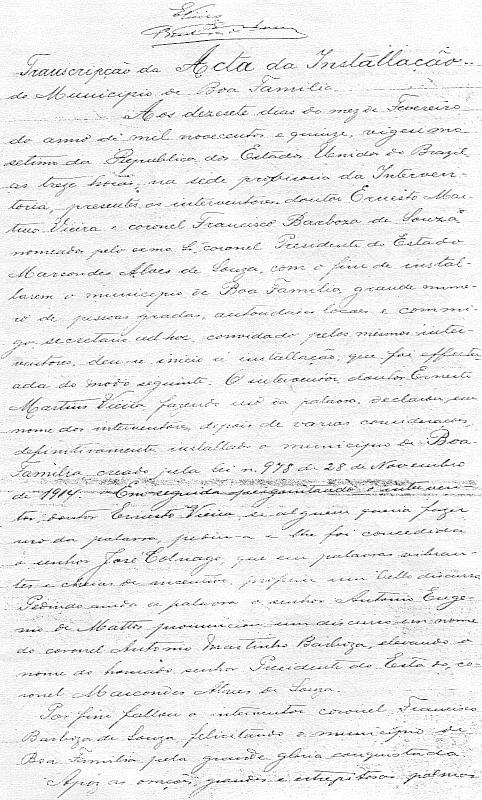 Vieira
Barboza de Souza
Transcripção da Acta da Installação
do Municipio de Boa Familia.
Aos dezesete dias do mez de Fevereiro
do anno de mil novecentos e quinze, vigesimo
setimo da Republica dos Estados Unidos do Brazil,
as treze horas, na sede provisoria da Interven-
toria, presentes os interventores doutor Ernesto Mar-
tins Vieira e coronel Francisco Barboza de Souza
nomeados pelo exmo Sr. coronel Presidente do Estado
Marcondes Alves de Souza, com o fim de instal-
larem o municipio de Boa Familia, grande nume-
ro de pessoas gradas, autoridades locaes e commi-
go secretario ad hoc, convidado pelos mesmos inter-
ventores, deu-se inicio á installação, que foi effectu-
ada do modo seguinte. O interventor doutor Ernesto
Martins Vieira fazendo uso da palavra, declarou, em
nome dos interventores, depois de varias considerações,
definitivamente installado o municipio de Boa
Familia, creado pela lei n. 978 de 28 de Novembro
de 1914. Em seguida perguntando o interven-
tor, doutor Ernesto Vieira, si alguem queria fazer
uso da palavra, pediu-a e lhe foi concedida
o senhor José Colnago, que em palavras vibran-
tes e cheias de incentivo, proferiu um bello discurso
Pedindo ainda a palavra o senhor Antonio Euge-
nio de Mattos pronunciou um discurso em nome
do coronel Antonio Martinho Barboza, elevando o
nome do honrado senhor Presidente do Estado, co-
ronel Marcondes Alves de Souza.
Por fim fallou o interventor coronel Francisco
Barboza de Souza felicitando o municipio de
Boa Familia pela grande gloria conquistada
Após as orações, grandes e estrepitosas palmas